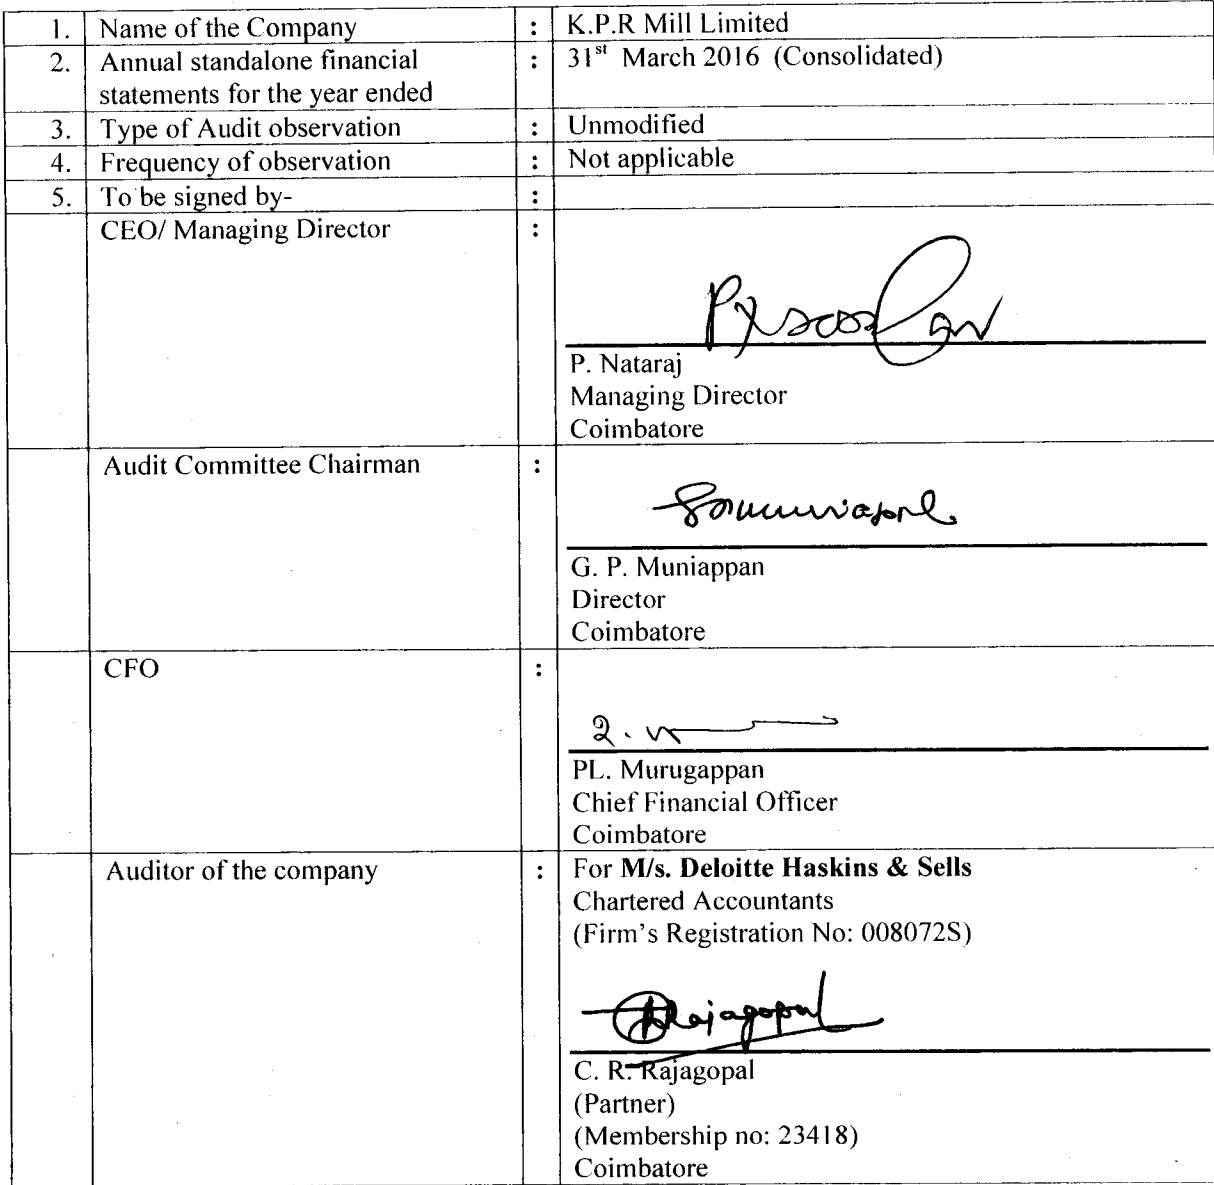 1. Name of the Company : K.P.R Mill Limited
2. Annual standalone financial : 31st March 2016 (Consolidated)
statements for the year ended
3. Type of Audit observation : Unmodified
4. Frequency of observation : Not applicable
5. To be signed by- :
CEO/ Managing Director :
P. Nataraj
Managing Director
Coimbatore
Audit Committee Chairman :
G. P. Muniappan
Director
Coimbatore
CFO :
PL. Murugappan
Chief Financial Officer
Coimbatore
Auditor of the company : For M/s. Deloitte Haskins & Sells
Chartered Accountants
(Firm's Registration No: 008072S)
Rajagopal
C. R. Rajagopal
(Partner)
(Membership no: 23418)
Coimbatore